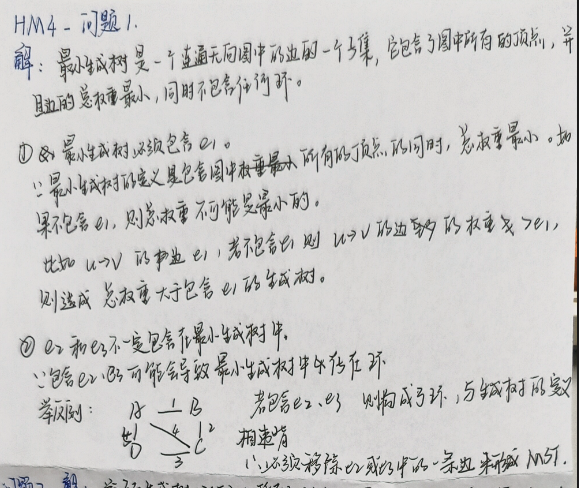 HM4 - 问题1.
解: 最小生成树是一个连通无向图中的边的一个子集, 它包含了图中所有的顶点, 并
且边的总权重最小, 同时不包含任何环。
① 最小生成树必须包含 e1 。
∵最小生成树的定义是包含图中所有的顶点的同时, 总权重最小。如
果不包含 e1, 则总权重不可能是最小的。
比如 u→v 的边 e1, 若不包含e1 则 u→v 的边的权重 > e1,
则造成 总权重大于包含 e1 的生成树。
② e2 和 e3 不一定包含在最小生成树中。
∵包含 e2、e3 可能会导致最小生成树中存在环
举反例: A 1 B 若包含 e2、e3 则构成了环, 与生成树的定义
4 2
D 3 C 相违背
∴必须移除 e2 或 e3 中的一条边 来形成 MST.